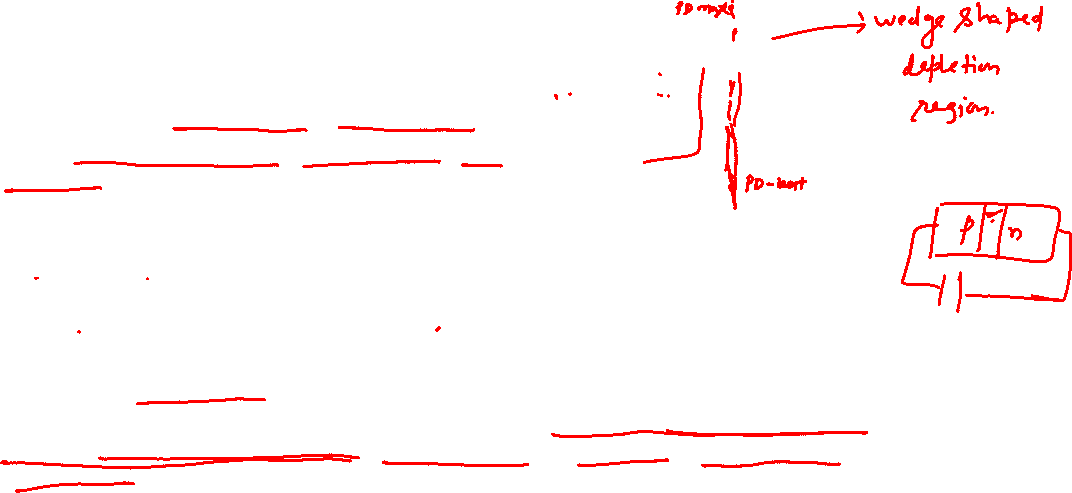 PD max
wedge shaped
depletion
region.
PD-least
p
n